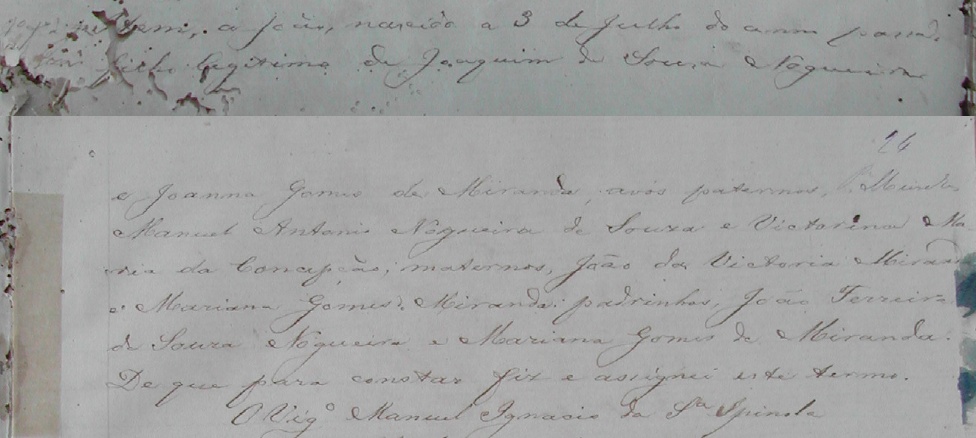 homem, a João, nascido a 3 de Julho do anno passado
filho legitimo de Joaquim de Souza Nogueira
26
e Joanna Gomes de Miranda, avós paternos,
Manuel Antonio Nogueira de Souza e Victorina Ma
ria da Concepção; maternos, João da Victoria Miranda
e Mariana Gomes d. Miranda: padrinhos, João Ferreira
de Souza Nogueira e Mariana Gomes de Miranda.
De que para constar fiz e assignei este termo.
O Vigº Manuel Ignacio da Sª Spinola